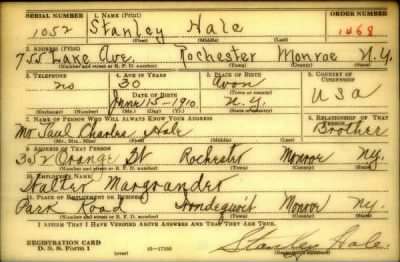 SERIAL NUMBER 1. NAME (Print) ORDER NUMBER
1052 Stanley Hale 1468
(First) (Middle) (Last)
2. ADDRESS (Print)
755 Lake Ave. Rochester Monroe N.Y.
(Number and street or R. F. D. number) (Town) (County) (State)
3. TELEPHONE 4. AGE IN YEARS 5. PLACE OF BIRTH 6. COUNTRY OF CITIZENSHIP
no 30 Avon
(Town or county)
DATE OF BIRTH
June 15-1910 N.Y. USA
(Exchange) (Number) (Mo.) (Day) (Yr.) (State or country)
7. NAME OF PERSON WHO WILL ALWAYS KNOW YOUR ADDRESS 8. RELATIONSHIP OF THAT PERSON
Mr Paul Charles Hale Brother
(Mr., Mrs., Miss) (First) (Middle) (Last)
9. ADDRESS OF THAT PERSON
352 Orange St Rochester Monroe Ny.
(Number and street or R. F. D. number) (Town) (County) (State)
10. EMPLOYER'S NAME
Walter Margrander
11. PLACE OF EMPLOYMENT OR BUSINESS
Park Road Irondequoit Monroe Ny.
(Number and street or R. F. D. number) (Town) (County) (State)
I AFFIRM THAT I HAVE VERIFIED ABOVE ANSWERS AND THAT THEY ARE TRUE.
REGISTRATION CARD
D. S. S. Form 1 (over) 16-17105 Stanley Hale.